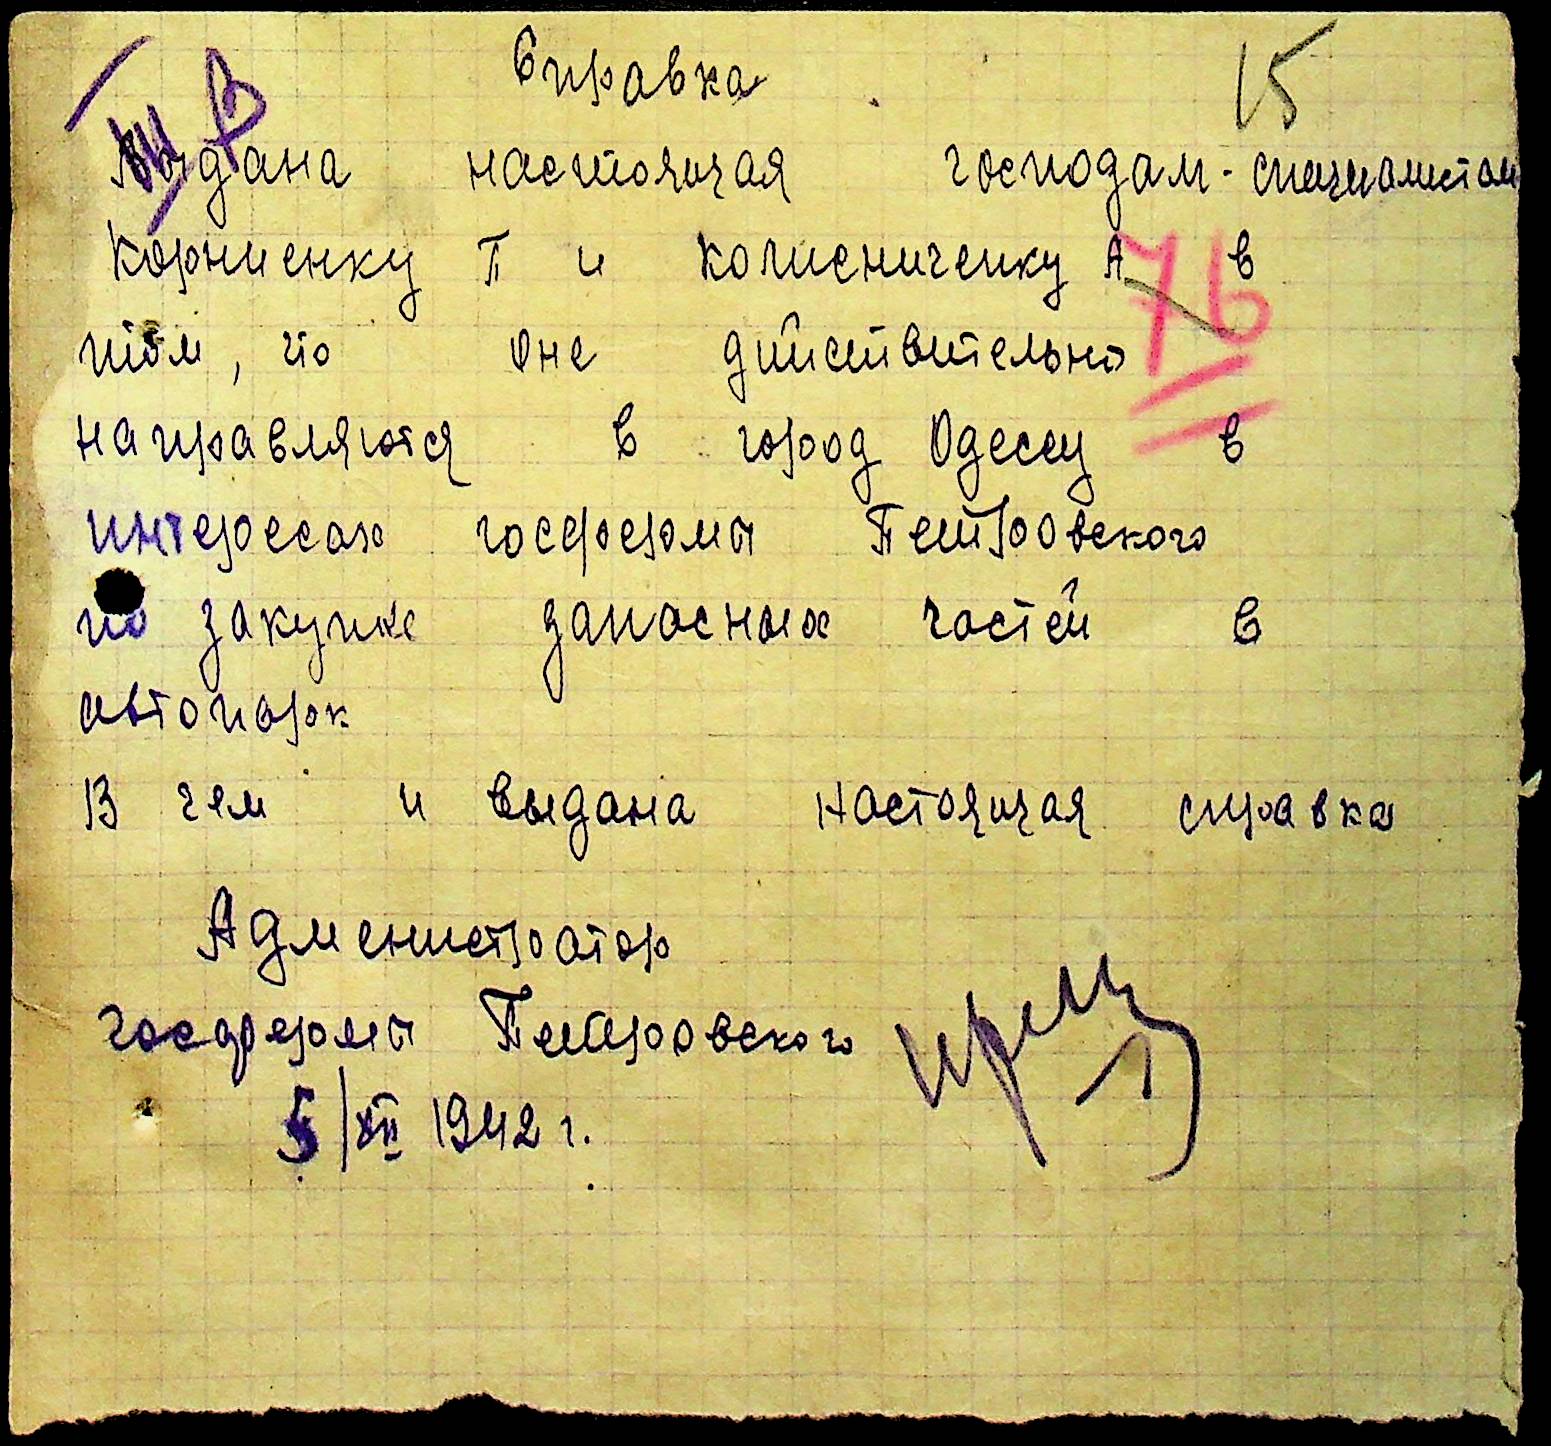 Справка
15
Выдана настоящая господам-специалистам
Корниенку П и Колисниченку А в
76
том, что оне дийствительно
направляются в город Одессу в
интересах госфермы Петровского
по закупке запасных частей в
автопарк
В чем и выдана настоящая справка
Адменистратор
госфермы Петровского
5/XII 1942 г.